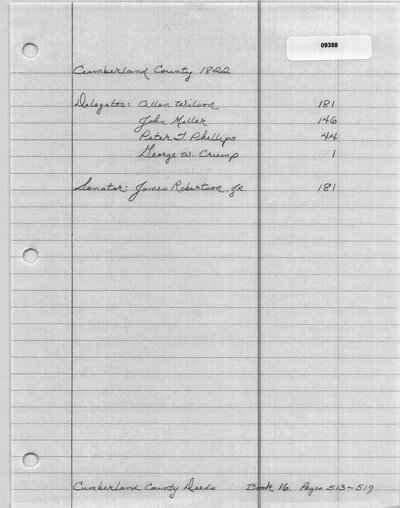 09388
Cumberland County 1822
Delegates: Allen Wilson 181
John Miller 146
Peter T. Phillips 44
George W. Crump 1
Senator: James Robertson, Jr 181
Cumberland County Deeds Book 16. Pages 513-519